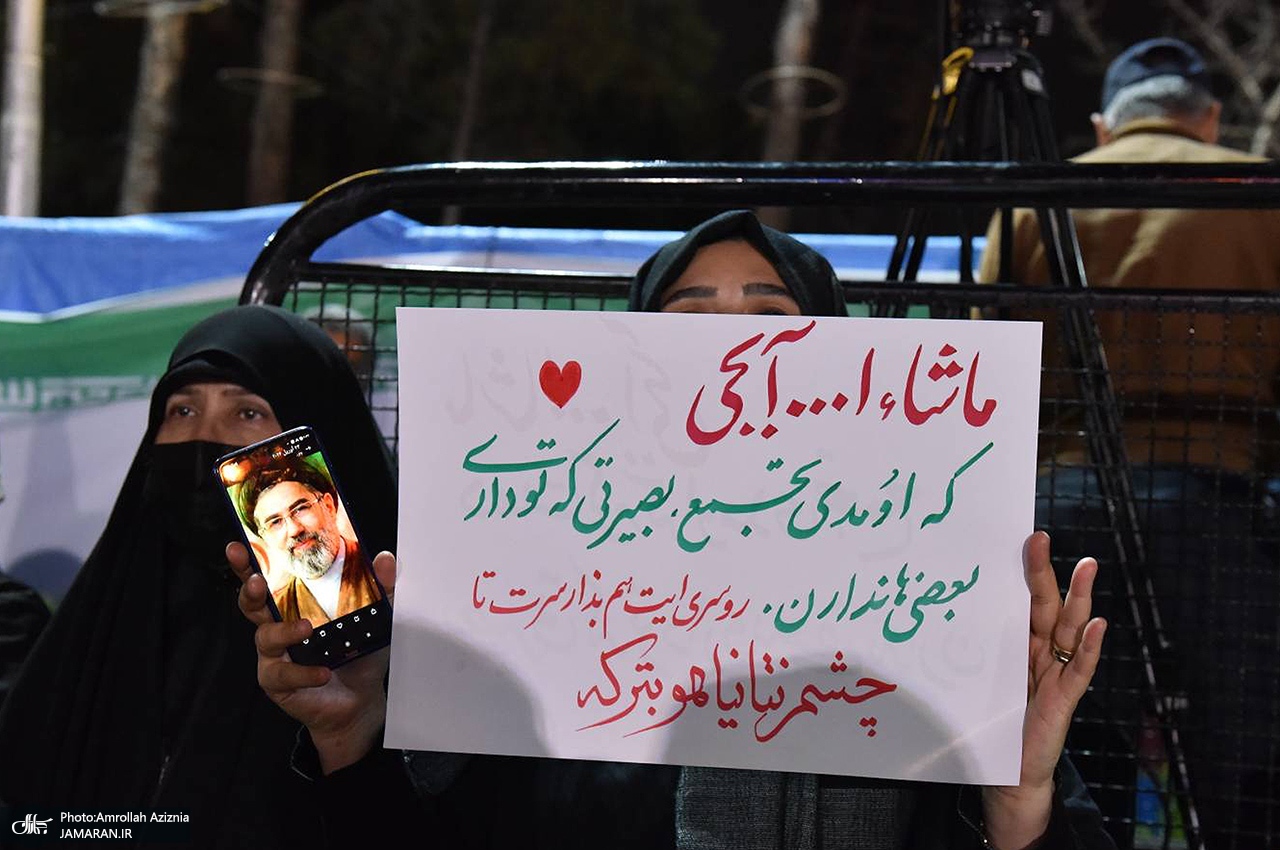 ماشاء ا... آبجی
که اومدی تجمع، بصیرتی که تو داری
بعضی ها ندارن. روسری ایت هم بذار سرت تا
چشم نتانیاهو بترکه
Photo:Amrollah Aziznia
JAMARAN.IR